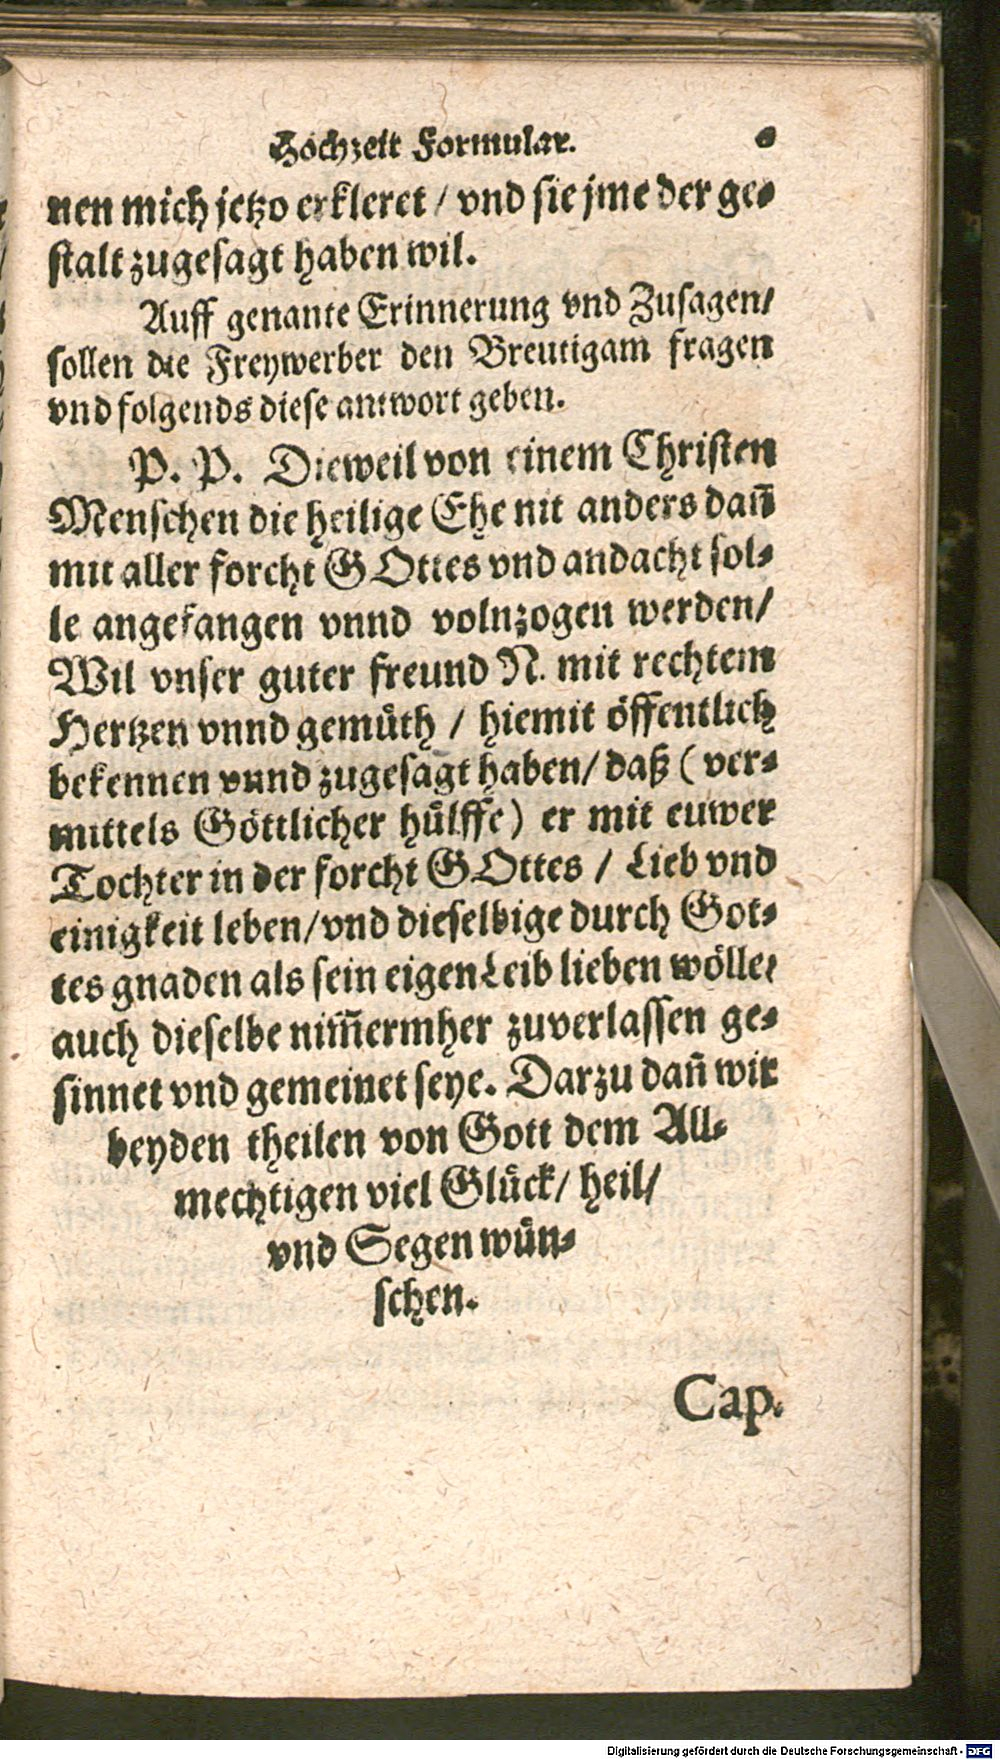 Hochzeit Formular.
nen mich jetzo erkleret / vnd sie jme der ge-
stalt zugesagt haben wil.
Auff genante Erinnerung vnd Zusagen/
sollen die Freywerber den Breutigam fragen
vnd folgends diese antwort geben.
P. P. Dieweil von einem Christen
Menschen die heilige Ehe nit anders dañ
mit aller forcht GOttes vnd andacht sol-
le angefangen vnnd volnzogen werden/
Wil vnser guter freund N. mit rechtem
Hertzen vnnd gemüth / hiemit öffentlich
bekennen vnnd zugesagt haben/ daß (ver-
mittels Göttlicher hülffe) er mit euwer
Tochter in der forcht GOttes / Lieb vnd
einigkeit leben/vnd dieselbige durch Got-
tes gnaden als sein eigen Leib lieben wölle/
auch dieselbe nim̃ermher zuverlassen ge-
sinnet vnd gemeinet seye. Darzu dañ wir
beyden theilen von Gott dem All-
mechtigen viel Glück/ heil/
vnd Segen wün-
schen.
Cap.
Digitalisierung gefördert durch die Deutsche Forschungsgemeinschaft - DFG